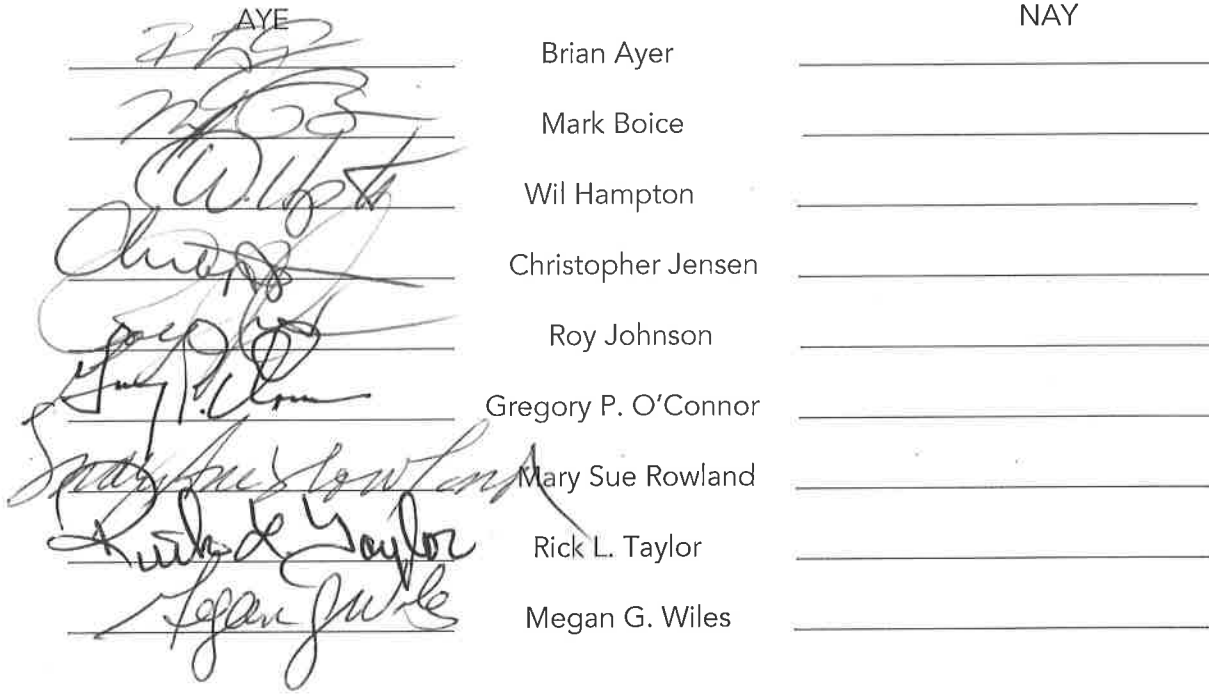 AYE NAY
Brian Ayer
Mark Boice
Wil Hampton
Christopher Jensen
Roy Johnson
Gregory P. O'Connor
Mary Sue Rowland Mary Sue Rowland
Rick L. Taylor Rick L. Taylor
Megan G Wiles Megan G. Wiles